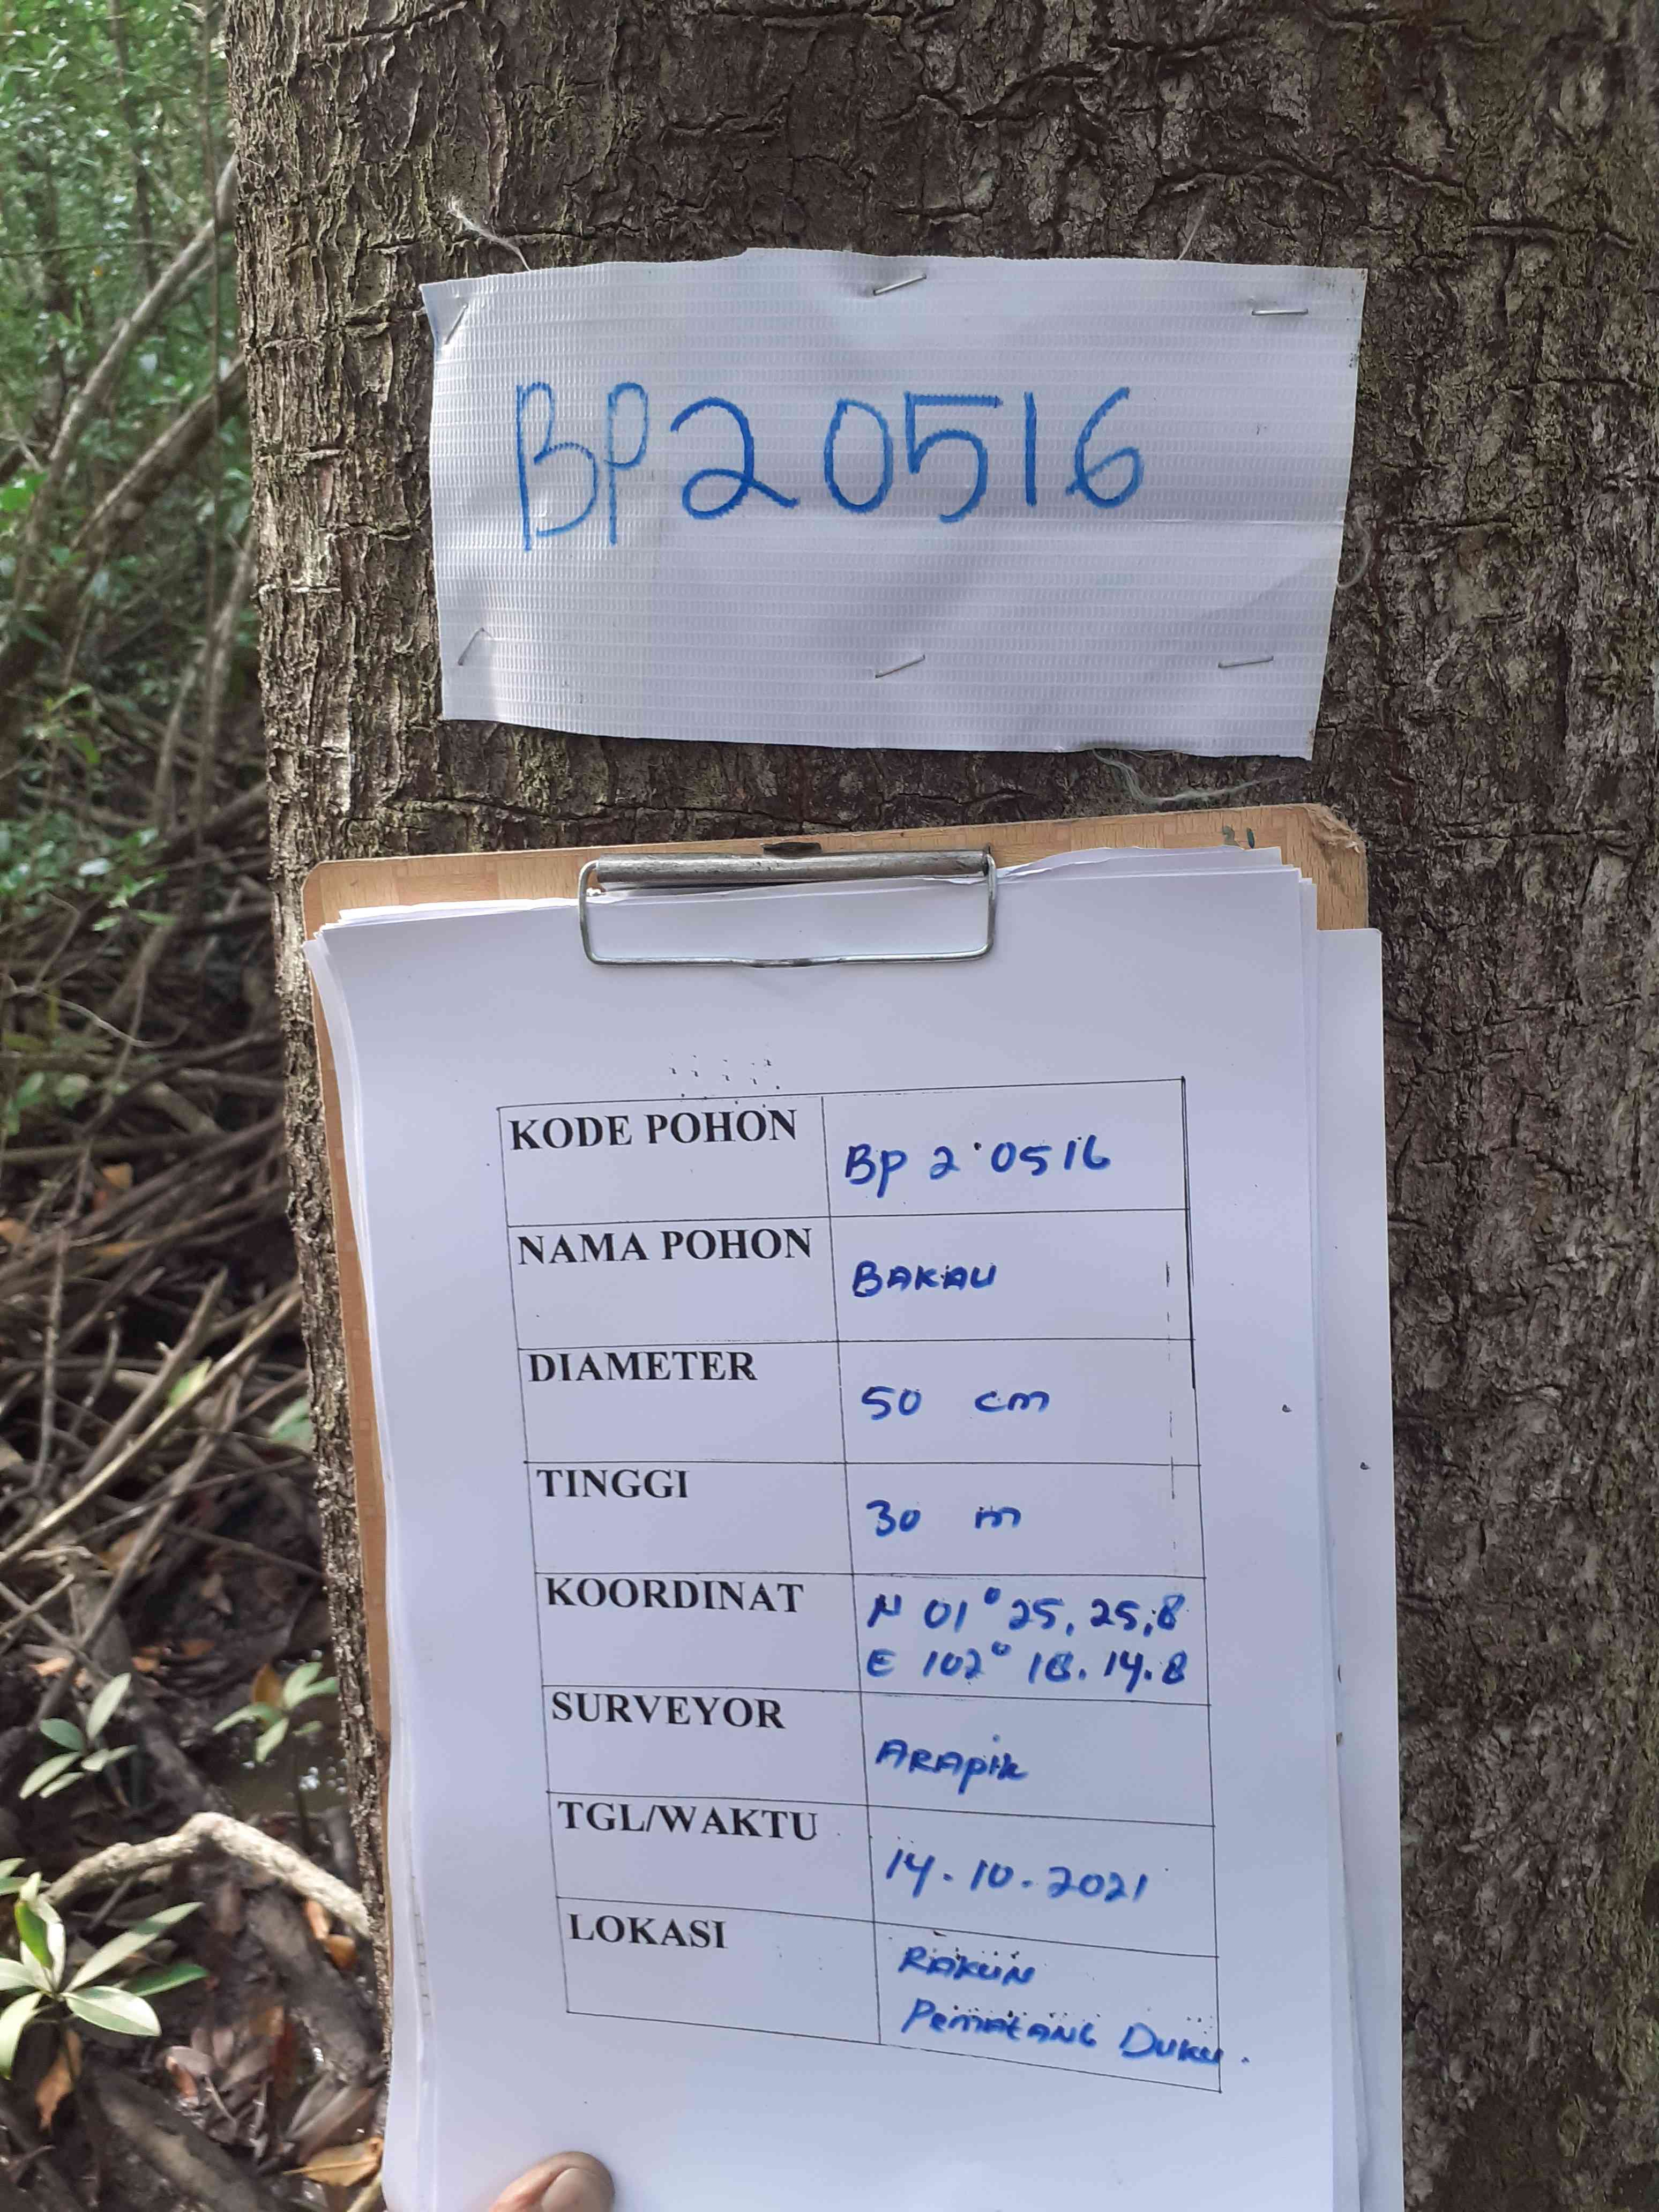 BP20516
KODE POHON
Bp 2·0516
NAMA POHON
BAKAU
DIAMETER
50 cm
TINGGI
30 m
KOORDINAT
N 01° 25, 25,8
E 102° 18. 14.8
SURVEYOR
ARApik
TGL/WAKTU
14.10.2021
LOKASI
RAKUN
PemATANG DUKU.